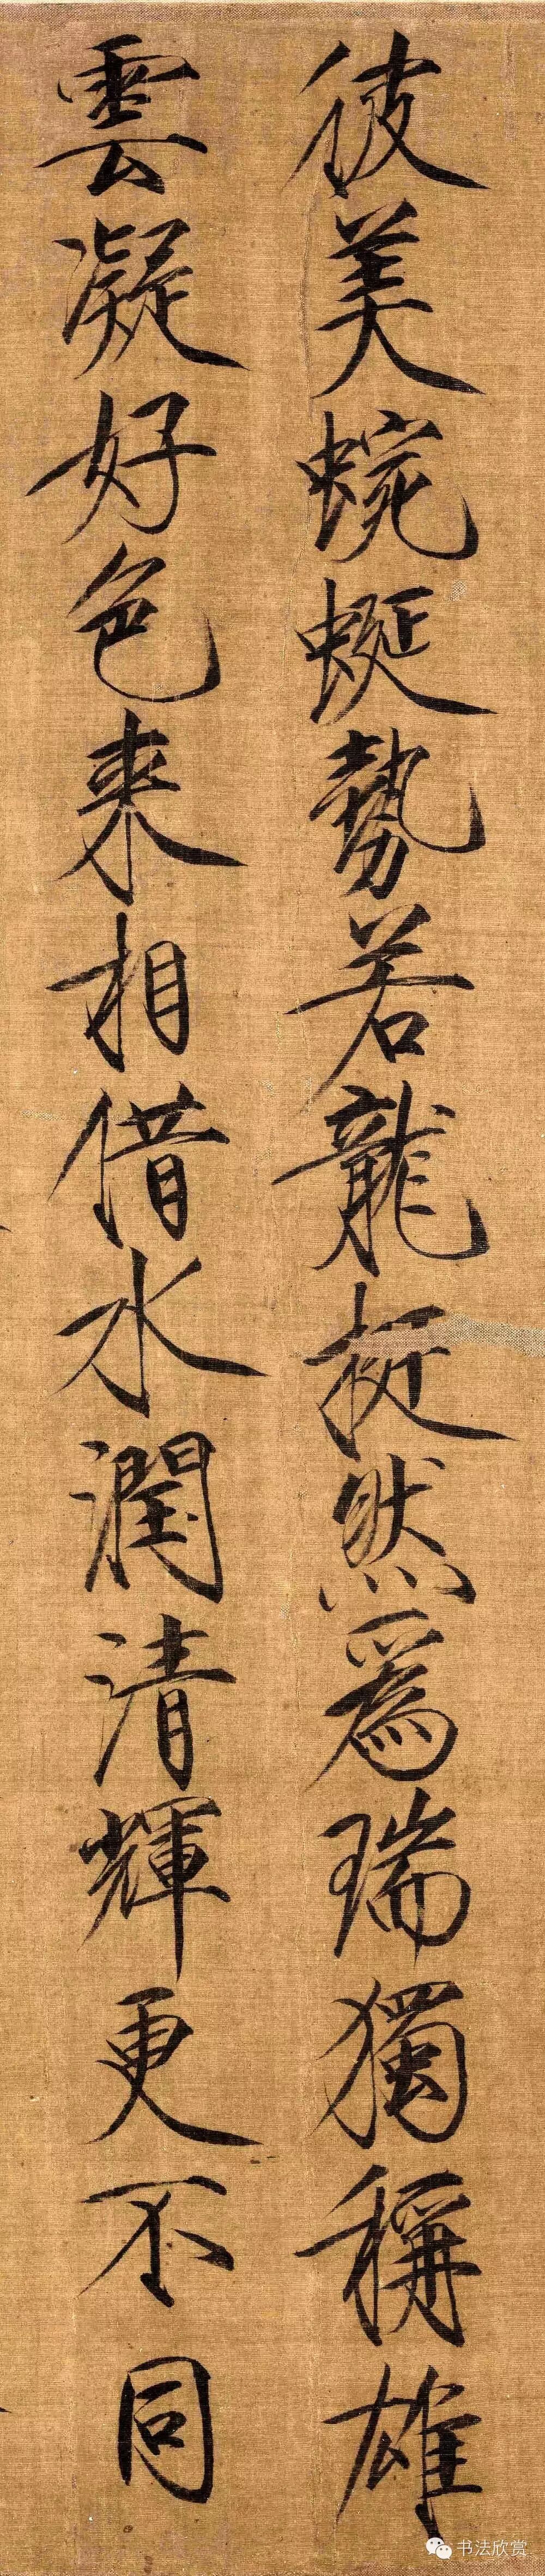 彼美蜿蜒勢若龍挺然為瑞獨稱雄
雲凝好色来相借水潤清輝更不同
书法欣赏